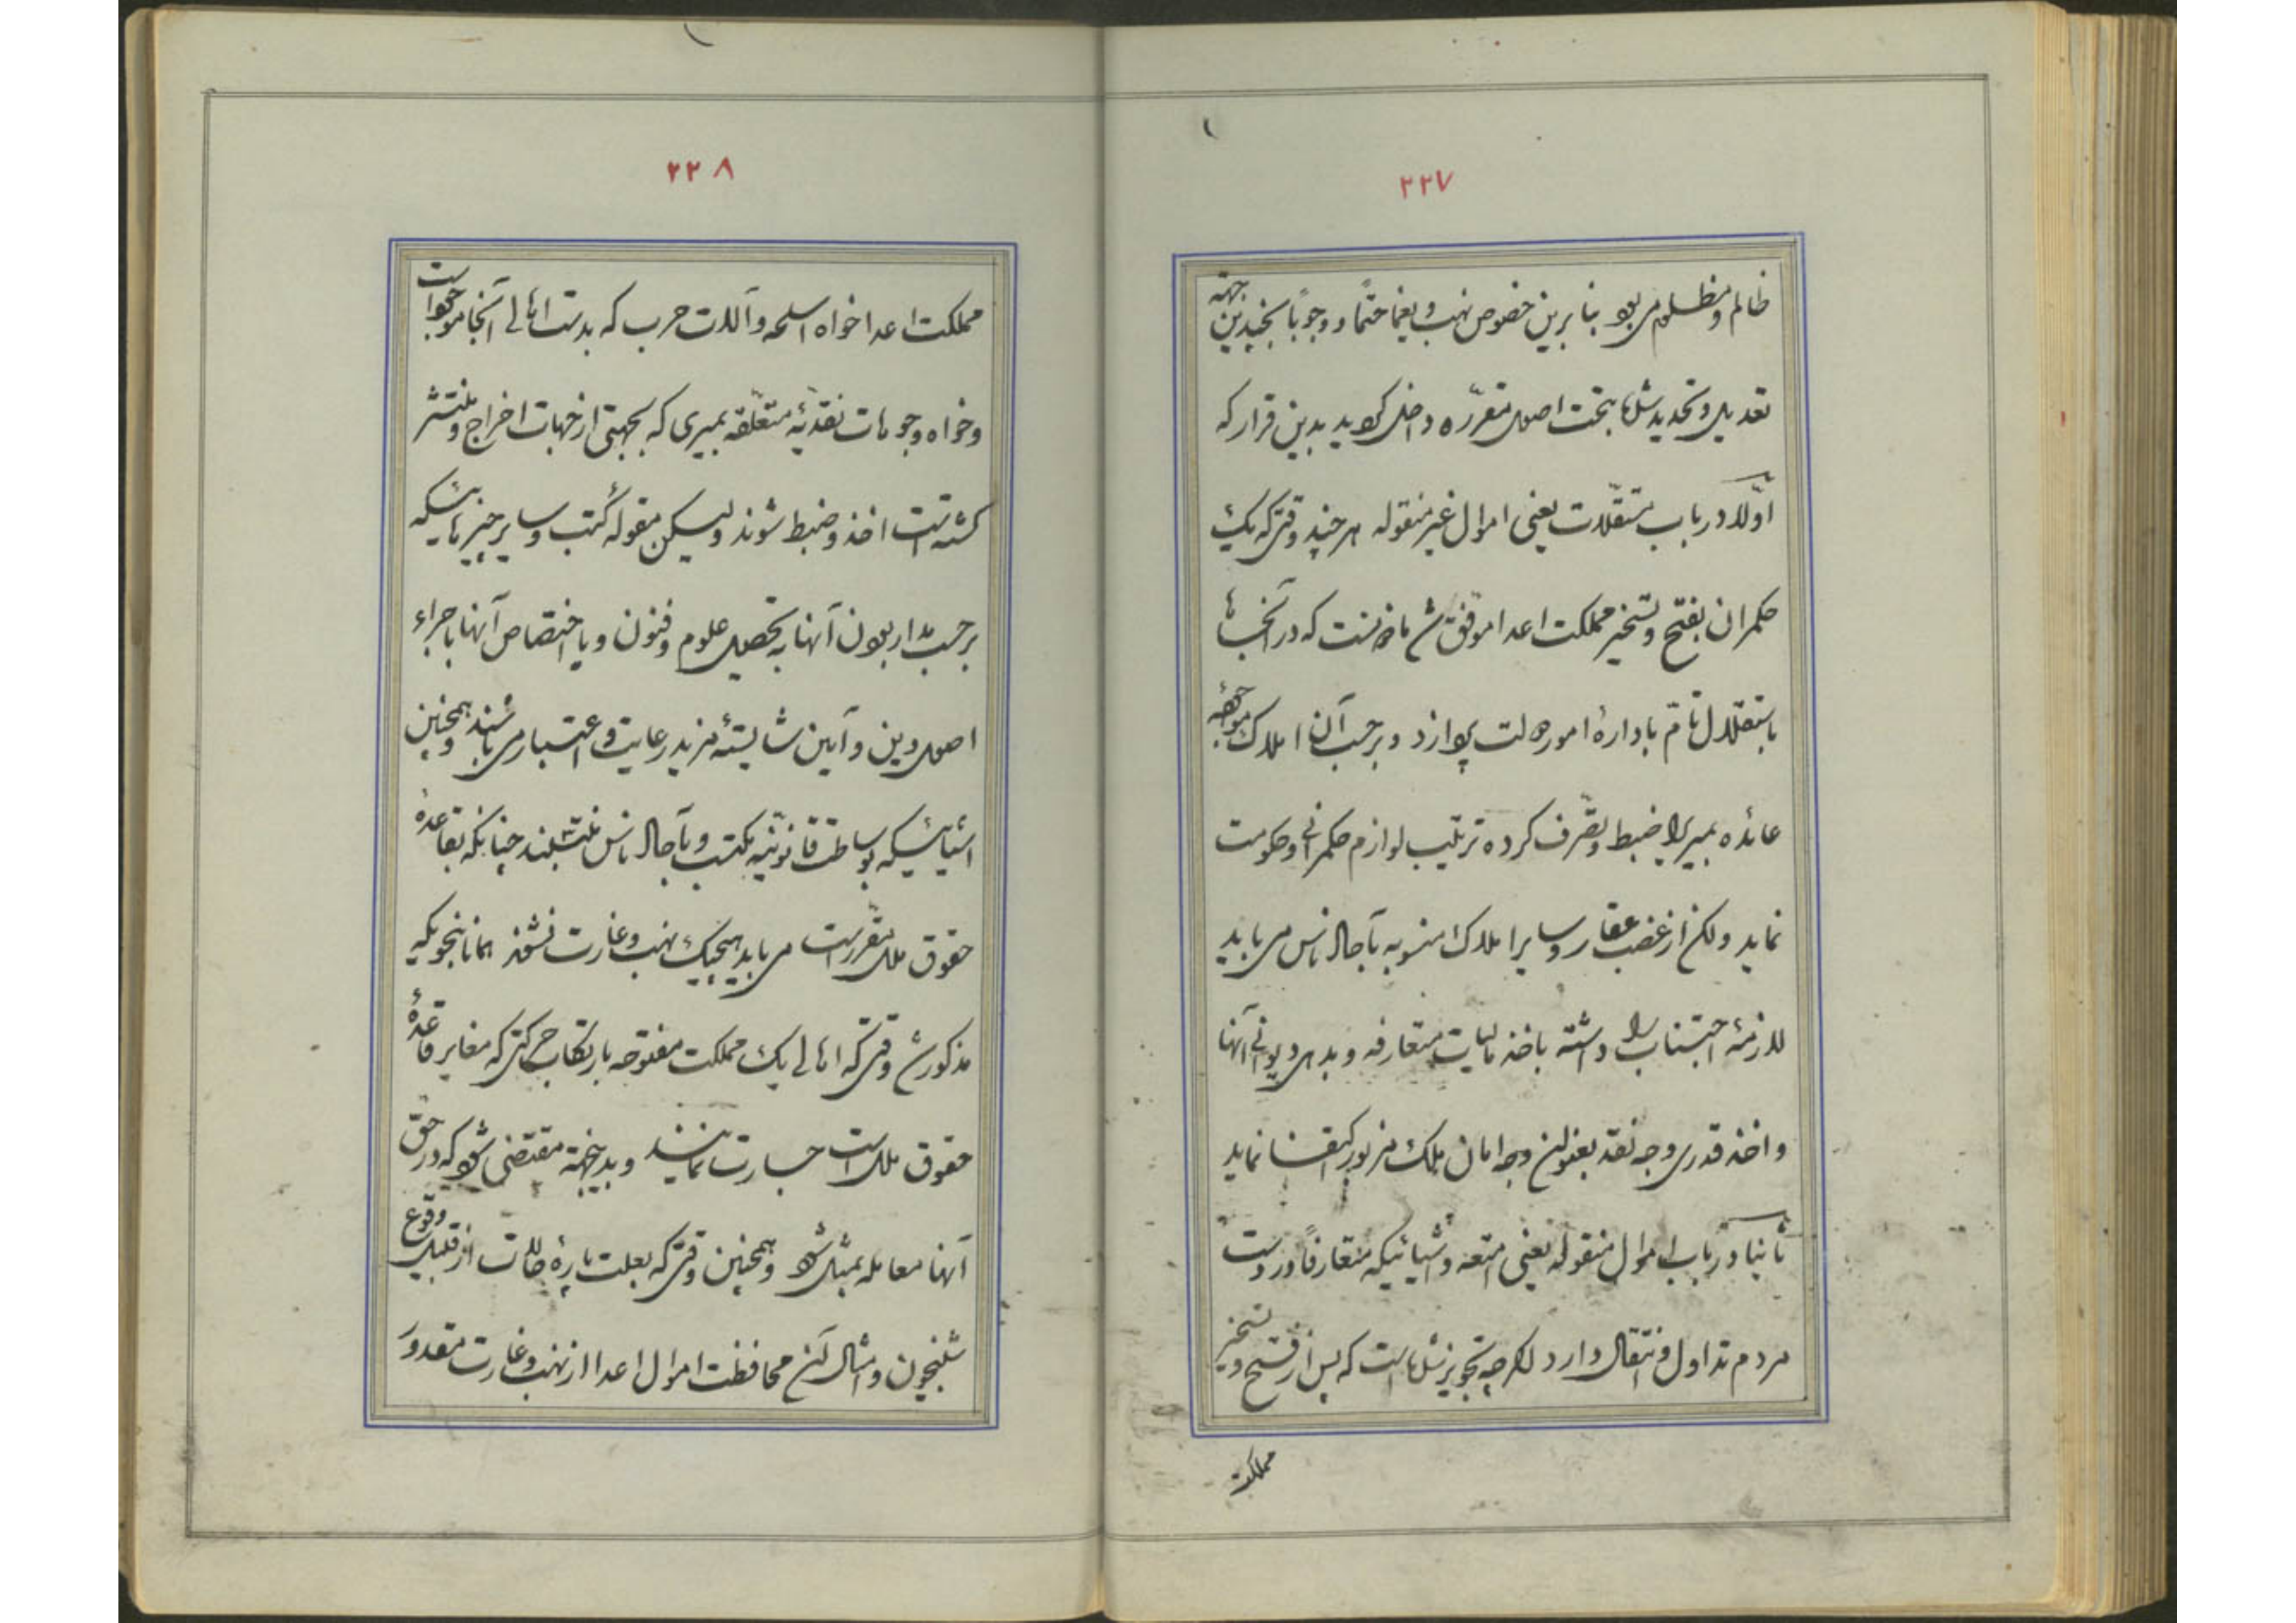 ۲۲۷
ظالم و مظلوم می بود بنا برین خصوص نهب و یغما حتماً و وجوباً بچندین جهة
تعدیل و تحدید شد تا بتحت اصول مقرره داخل گردید بدین قرار که
اولا در باب مستقلات یعنی اموال غیر منقوله هر چند وقتی که یک
حکمران بفتح و تسخیر مملکت اعدا موفق شد ماذونست که در آنجا
باستقلال تام باداره امور دولت پردازد و بر حسب آن املاک موجوده
عائده بمیری را ضبط و تصرف کرده ترتیب لوازم حکمرانی و حکومت
نماید ولکن از غصب عقار و سایر املاک منسوبه بآحاد ناس می باید
لازمهٔ اجتناب را داشته باخذ مالیات متعارفه و بدهی دیوانی آنها
و اخذ قدری وجه نقد بعنوان وجه امان ملک مزبور اکتفا نماید
ثانیا در باب اموال منقوله یعنی امتعه و اشیائیکه متعارفاً در دست
مردم تداول و انتقال دارد اگرچه تجویز شده است که پس از فتح و تسخیر
مملکت
۲۲۸
مملکت اعدا خواه اسلحه و آلات حرب که بدست اهالی آنجا موجود است
و خواه وجوهات نقدیهٔ متعلقه بمیری که بجهتی از جهات اخراج و منتشر
گشته است اخذ و ضبط شوند ولیکن مقوله کتب و سایر چیزهائیکه
بر حسب مدار بودن آنها به تحصیل علوم و فنون و یا اختصاص آنها باجراء
اصول دین و آیین شایستهٔ مزید رعایت و اعتبار می باشند و همچنین
اشیائیکه بوساطت قانونیه مکتسب و بآحاد ناس منتسبند چنانکه بقاعده
حقوق ملل مقرر است می باید هیچیک نهب و غارت نشوند همانا بنحویکه
مذکور شد وقتی که اهالی یک مملکت مفتوحه بارتکاب حرکتی که مغایر قاعدهٔ
حقوق ملل است جسارت نمایند و بدینجهة مقتضی شود که در حق
آنها معامله بمثل شود و همچنین وقتی که بعلت پارهٔ حالات از قبیل وقوع
شبیخون و امثال آن محافظت اموال اعدا از نهب و غارت مقدور